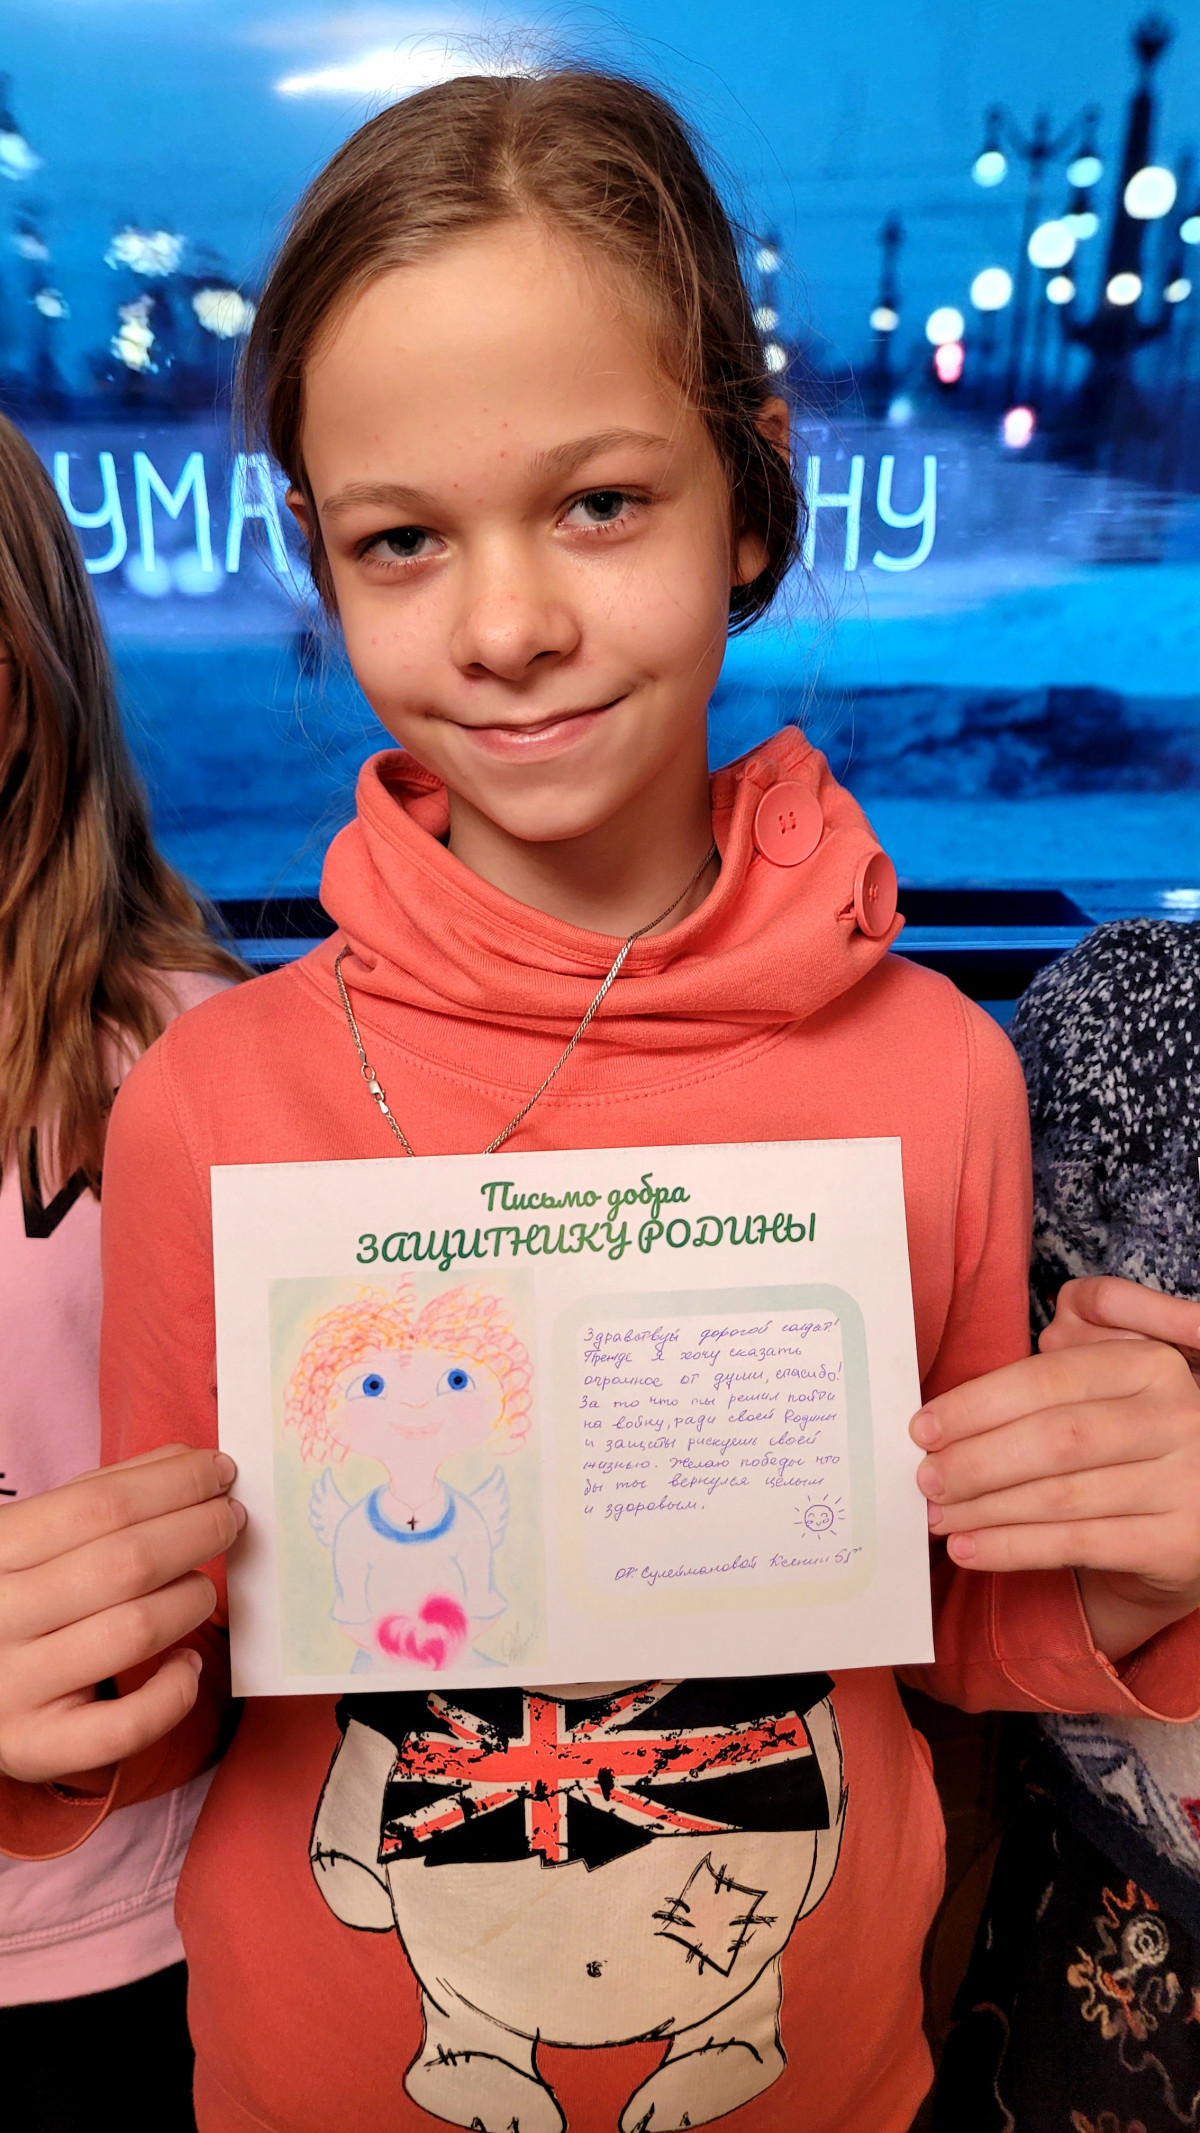 УМА НУ
Письмо добра
ЗАЩИТНИКУ РОДИНЫ
Здравствуй дорогой солдат!
Прежде я хочу сказать
огромное от души, спасибо!
За то что ты решил пойти
на войну, ради своей Родины
и защиты рискуешь своей
жизнью. Желаю победы что
бы ты вернулся целым
и здоровым.
От: Сулеймановой Ксении 5Г